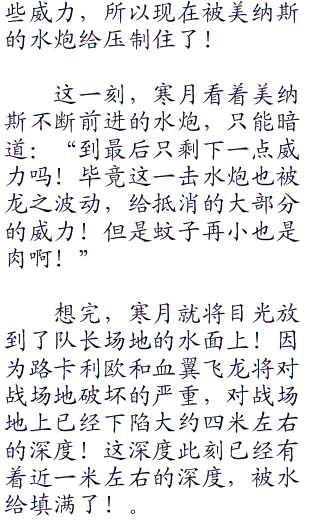 些威力，所以现在被美纳斯
的水炮给压制住了！
　　这一刻，寒月看着美纳
斯不断前进的水炮，只能暗
道：“到最后只剩下一点威
力吗！毕竟这一击水炮也被
龙之波动，给抵消的大部分
的威力！但是蚊子再小也是
肉啊！”
　　想完，寒月就将目光放
到了队长场地的水面上！因
为路卡利欧和血翼飞龙将对
战场地破坏的严重，对战场
地上已经下陷大约四米左右
的深度！这深度此刻已经有
着近一米左右的深度，被水
给填满了！。